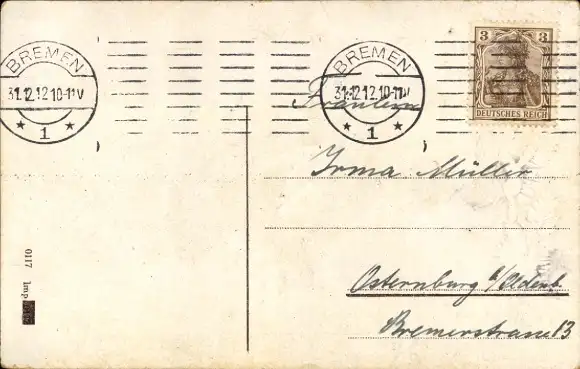 BREMEN
31.12.12.10-11V
* 1 *
BREMEN
31.12.12.10-11V
* 1 *
3 3
DEUTSCHES REICH
Fräulein
Irma Müller
Osternburg b/Oldenb.
Bremerstrasse 13
0117 Imp